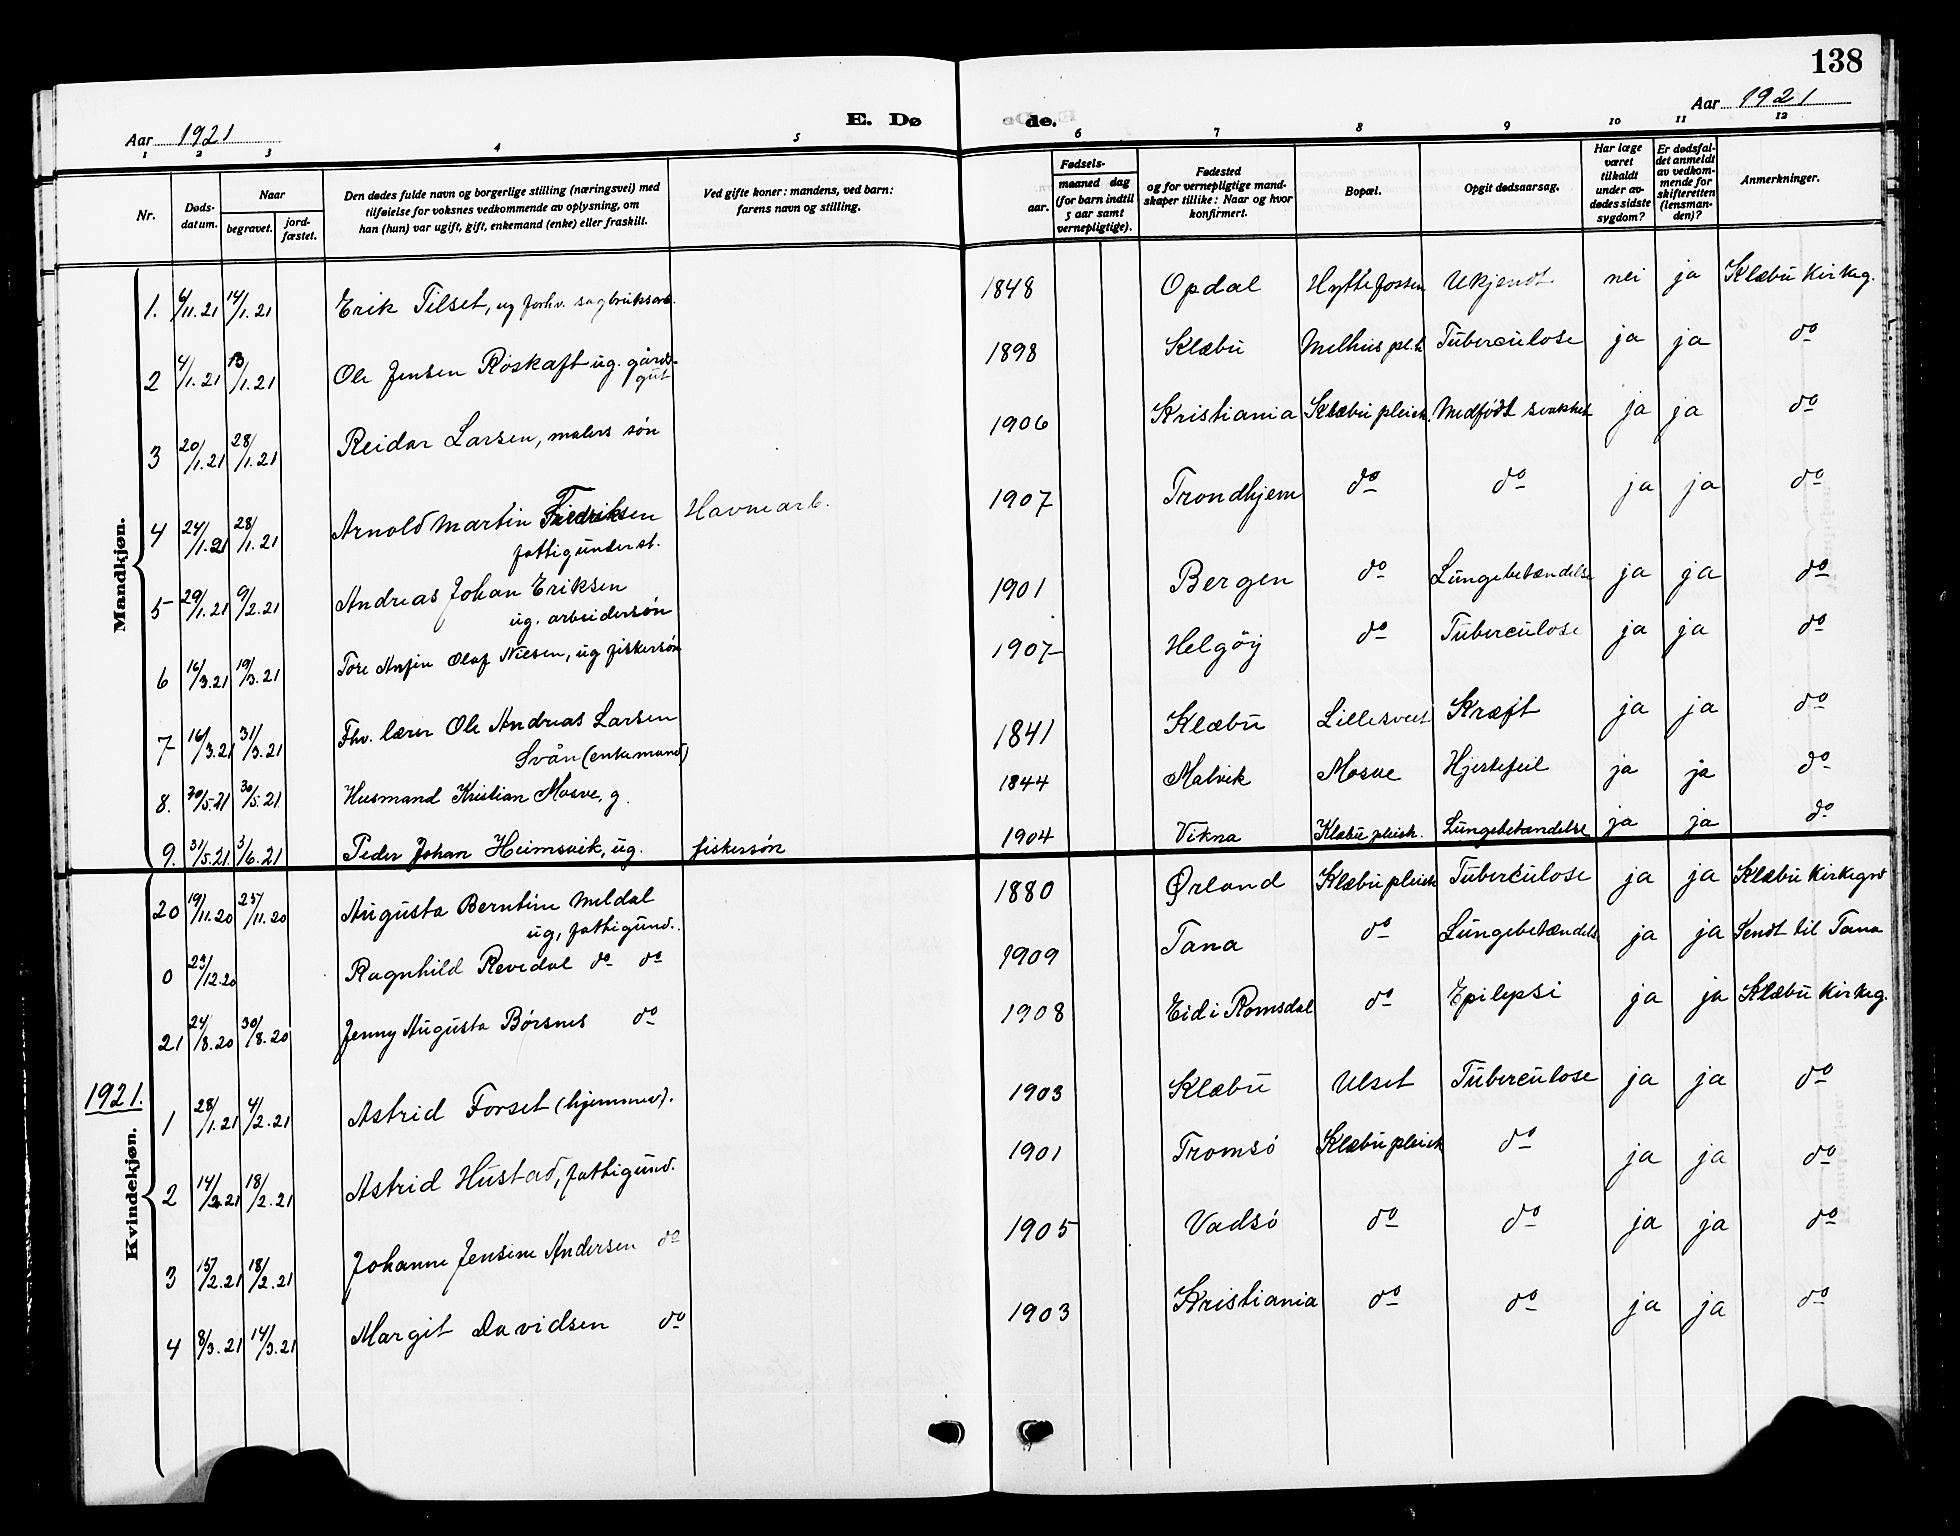 138
Aar 1921 E. Dø de. Aar 1921
1 2 3 4 5 6 7 8 9 10 11 12
Nr. Døds-datum. Naar begravet. jord-fæstet. Den dødes fulde navn og borgerlige stilling (næringsvei) med tilføielse for voksnes vedkommende av oplysning, om han (hun) var ugift, gift, enkemand (enke) eller fraskilt. Ved gifte koner: mandens, ved barn: farens navn og stilling. Fødsels- aar. maaned dag (for barn indtil 5 aar samt vernepligtige). Fødested og for vernepligtige mandskaper tillike: Naar og hvor konfirmert. Bopæl. Opgit dødsaarsag. Har læge været tilkaldt under avdødes sidste sygdom? Er dødsfaldet anmeldt av vedkommende for skifteretten (lensmanden)? Anmerkninger.
Mandkjøn.
1. 14/1.21 Erik Tilset, ug forhv. sagbruksarb. 1848 Opdal Hyttefossen Ukjendt nei ja Klæbu Kirkeg.
2 4/1.21 13/1.21 Ole Jensen Røskaft ug. gårds-
gut 1898 Klæbu Melhus pl.h Tuberculose ja ja do
3 20/1.21 28/1.21 Reidar Larsen, malers søn 1906 Kristiania Klæbu pleieh. Medfødt svakhet ja ja do
4 24/1.21 28/1.21 Arnold Martin Fredriksen Havnearb. 1907 Trondhjem do do ja ja do
fattigunderst.
5 29/1.21 9/2.21 Andreas Johan Eriksen 1901 Bergen do Lungebetændelse ja ja do
ug. arbeidersøn
6 16/3.21 19/3.21 Tore Olaf Nilsen, ug fiskersøn 1907 Helgöy do Tuberculose ja ja do
7 16/3.21 31/3.21 Fhv. lærer Ole Andreas Larsen 1841 Klæbu Kræft ja ja do
Svån (enkemand)
8. 30/5.21 Husmand Kristian Mosve, g. 1844 Malvik Mosve Hjertefeil ja ja do
9. 31/5.21 3/6.21 Peder Johan Heimsvik, ug. fiskersøn 1904 Vikna Klæbu pleieh. Lungebetændelse ja ja do
20 19/11.20 25/11.20 Augusta Berntine Meldal 1880 Ørland Klæbu pleieh Tuberculose ja ja Klæbu Kirkegrd
ug, fattigund.
0 23/12.20 Ragnhild Revedal do do 1909 Tana do Lungebetændels ja ja Sendt til Tana
21 24/8.20 30/8.20 Jenny Augusta Børsnes do 1908 Eid i Romsdal do Epilepsi ja ja Klæbu Kirkeg.
1921.
Kvindekjøn.
1 28/1.21 4/2.21 Astrid Forset (hjemmev). 1903 Klæbu Ulset Tuberculose ja ja do
2 14/2.21 18/2.21 Astrid Hustad, fattigund. 1901 Tromsö Klæbu pleieh do ja ja do
3 15/2.21 18/2.21 Johanne Jensine Andersen do 1905 Vadsö do do ja ja do
4 8/3.21 14/3.21 Margit Davidsen do 1903 Kristiania do do ja ja do